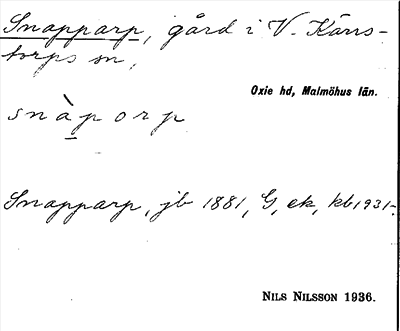 Snapparp, gård i V. Kärrs-
torps sn,
Oxie hd, Malmöhus län.
snàporp
Snapparp, jb 1881, G, ek, kb 1931.
NILS NILSSON 1936.